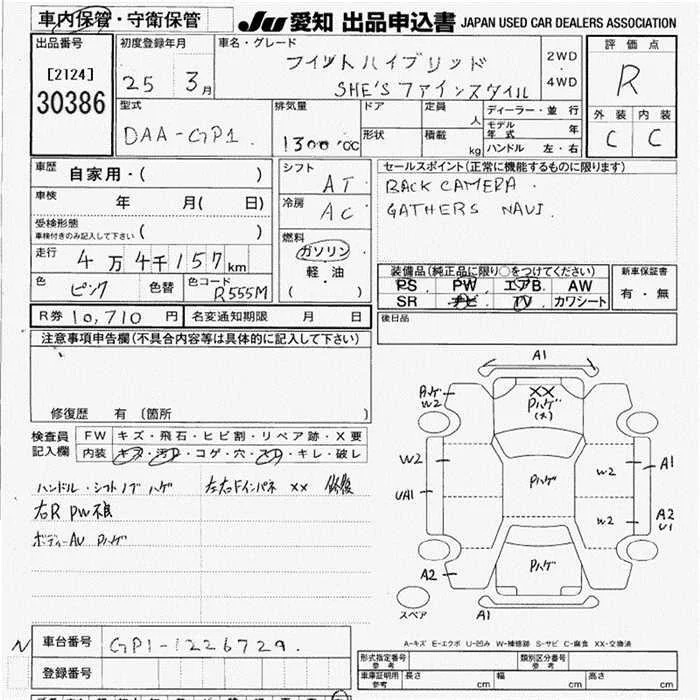 車内保管・守衛保管
JU 愛知 出品申込書 JAPAN USED CAR DEALERS ASSOCIATION
出品番号
[2124]
30386
初度登録年月
25 3月
車名・グレード
フィットハイブリッド
SHE'S ファインスタイル
2WD
・
4WD
評価点
R
外装 内装
C C
型式
DAA-GP1
排気量
1300 cc
ドア
形状
定員 人
積載 kg
ディーラー・並行
モデル年式 年
ハンドル 左・右
車歴 自家用・( )
車検 年 月( 日)
受検形態
車検付きのみ記入して下さい ( )
走行 4万4千157km
色 ピンク 色替 色コード R555M
シフト AT
冷房 AC
燃料
ガソリン
軽・油
( )
セールスポイント(正常に機能するものに限ります)
BACK CAMERA.
GATHERS NAVI.
装備品(純正品に限り○をつけてください)
PS PW エアB. AW
SR ナビ TV カワシート
新車保証書
有・無
R券 10,710 円 名変通知期限 月 日
後日品
注意事項申告欄(不具合内容等は具体的に記入して下さい)
修復歴 有 〔箇所 〕
検査員記入欄
FW キズ・飛石・ヒビ割・リペア跡・X要
内装 キズ・汚レ・コゲ・穴・スレ・キレ・破レ
ハンドル・シフトノブ ハゲ 左右Fインパネ XX 修復
右R PW不良
ボディーAU Pハゲ
A1
Aハゲ
W2
XX
Pハゲ
(大)
W2
UA1
Pハゲ
W2
A1
W2
A2
U1
A2
Pハゲ
A1
スペア
A-キズ E-エクボ U-凹み W-補修跡 S-サビ C-腐食 XX-交換済
N 車台番号 GP1-1226729.
登録番号
形式指定番号 参考
類別区分番号 参考
車庫証明用 参考 長さ cm 幅 cm 高さ cm